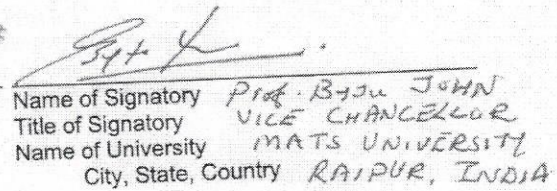 Name of Signatory Prof. Byju JOHN
Title of Signatory VICE CHANCELLOR
Name of University MATS UNIVERSITY
City, State, Country RAIPUR, INDIA